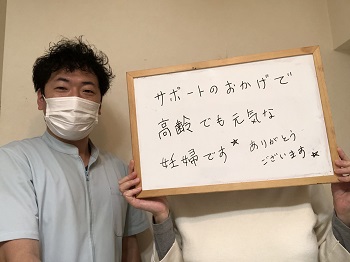 サポートのおかげで
高齢でも元気な
妊婦です★
ありがとう
ございます★